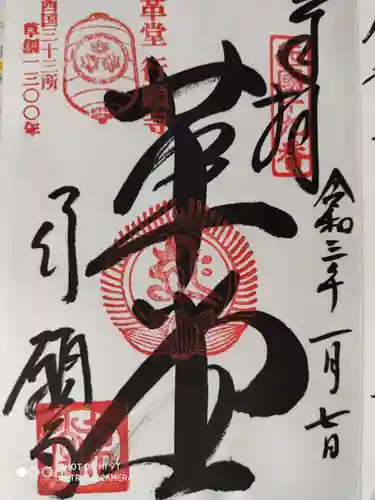 奉拝
令和三年一月七日
革堂
行願寺
革堂行願寺
西国三十三所
草創一三〇〇年
SHOT ON MI 9T
AI TRIPLE CAMERA